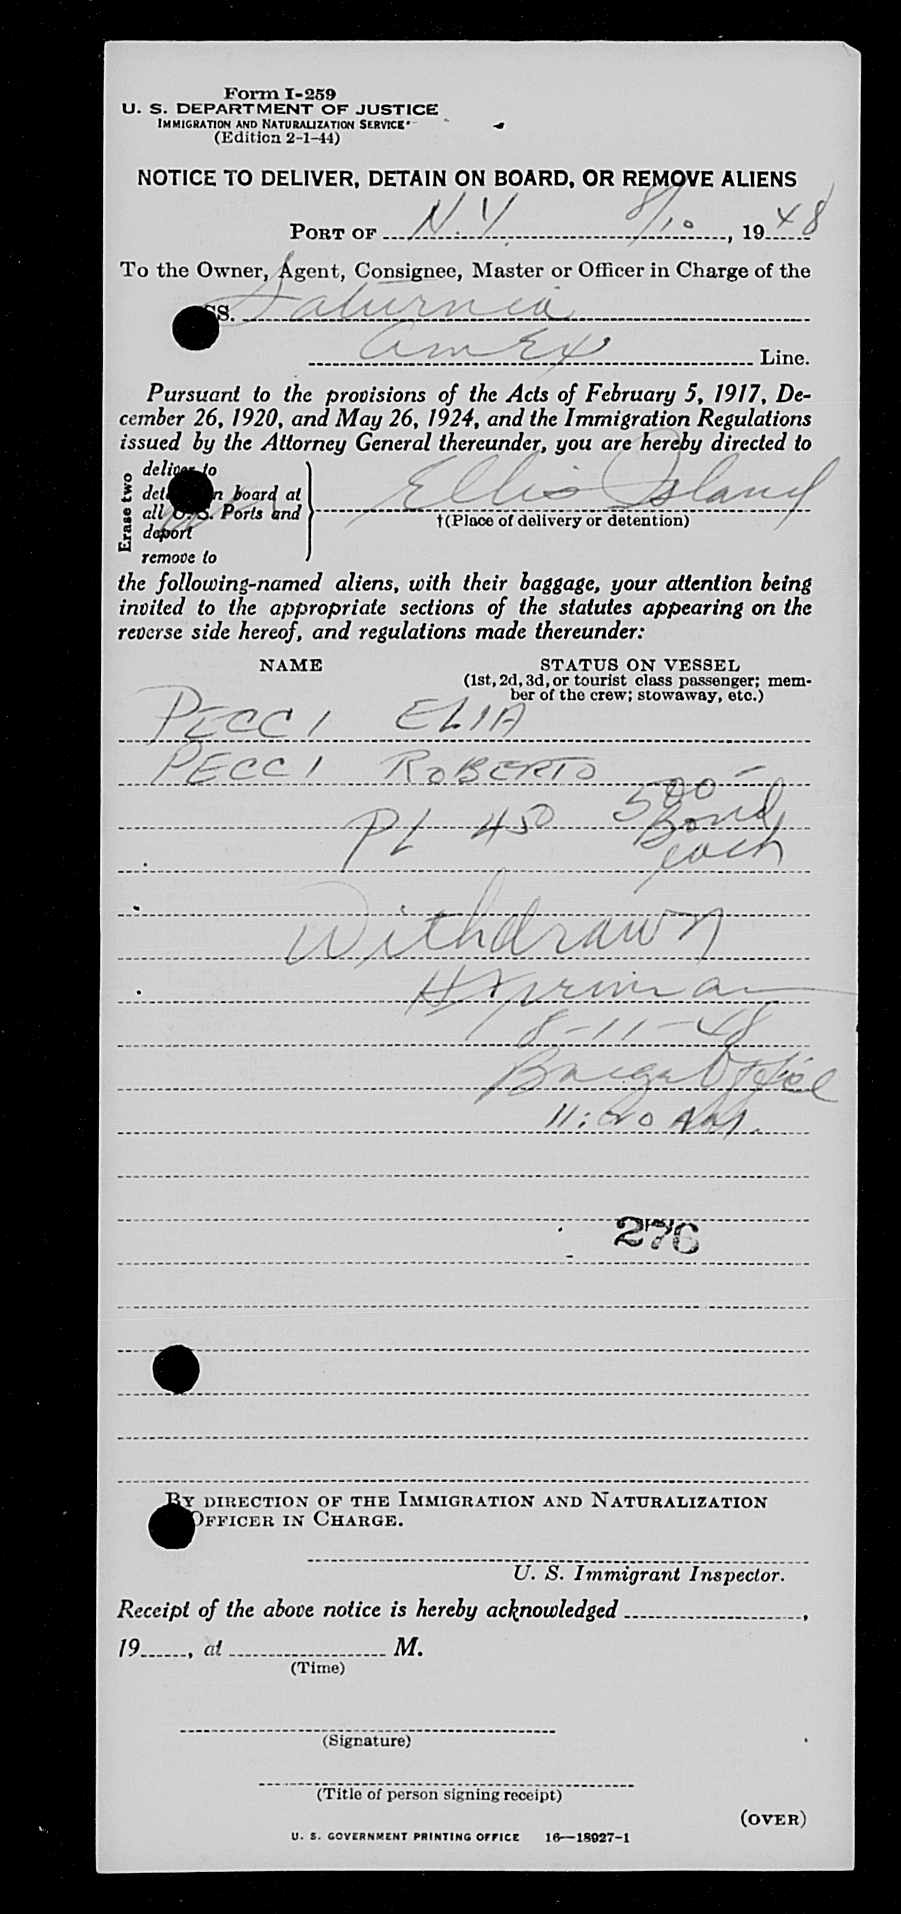 Form I-259
U. S. DEPARTMENT OF JUSTICE
IMMIGRATION AND NATURALIZATION SERVICE
(Edition 2-1-44)
NOTICE TO DELIVER, DETAIN ON BOARD, OR REMOVE ALIENS
PORT OF N.Y. 8/10, 1948
To the Owner, Agent, Consignee, Master or Officer in Charge of the
SS. Saturnia
Am Ex Line.
Pursuant to the provisions of the Acts of February 5, 1917, De-
cember 26, 1920, and May 26, 1924, and the Immigration Regulations
issued by the Attorney General thereunder, you are hereby directed to
Erase two
deliver to
n board at
all U. S. Ports and
deport
remove to
Ellis Island
†(Place of delivery or detention)
the following-named aliens, with their baggage, your attention being
invited to the appropriate sections of the statutes appearing on the
reverse side hereof, and regulations made thereunder:
NAME STATUS ON VESSEL
(1st, 2d, 3d, or tourist class passenger; mem-
ber of the crew; stowaway, etc.)
PECCI ELIA
PECCI ROBERTO
PL 450 500-
Bond
each
Withdrawn
8-11-48
Barge Office
11:20 AM.
276
BY DIRECTION OF THE IMMIGRATION AND NATURALIZATION
OFFICER IN CHARGE.
U. S. Immigrant Inspector.
Receipt of the above notice is hereby acknowledged ,
19 , at M.
(Time)
(Signature)
(Title of person signing receipt)
(OVER)
U. S. GOVERNMENT PRINTING OFFICE 16—18927-1